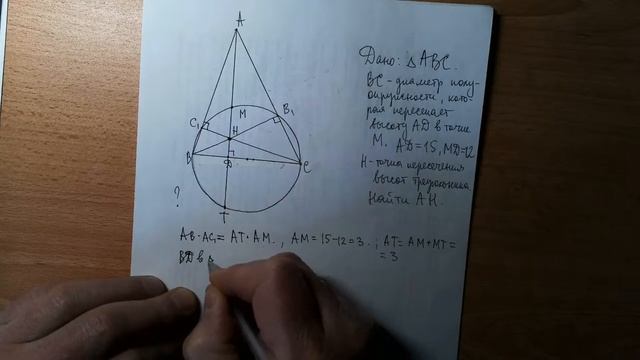 A
M
C₁
B₁
H
B
D
C
T
?
Дано: △ ABC.
BC - диаметр полу-
окружности, кото-
рая пересекает
высоту AD в точке
M. AD = 15, MD = 12
H - точка пересечения
высот треугольника
Найти AH.
AB · AC₁ = AT · AM. , AM = 15 - 12 = 3. ; AT = AM + MT =
= 3
BD в